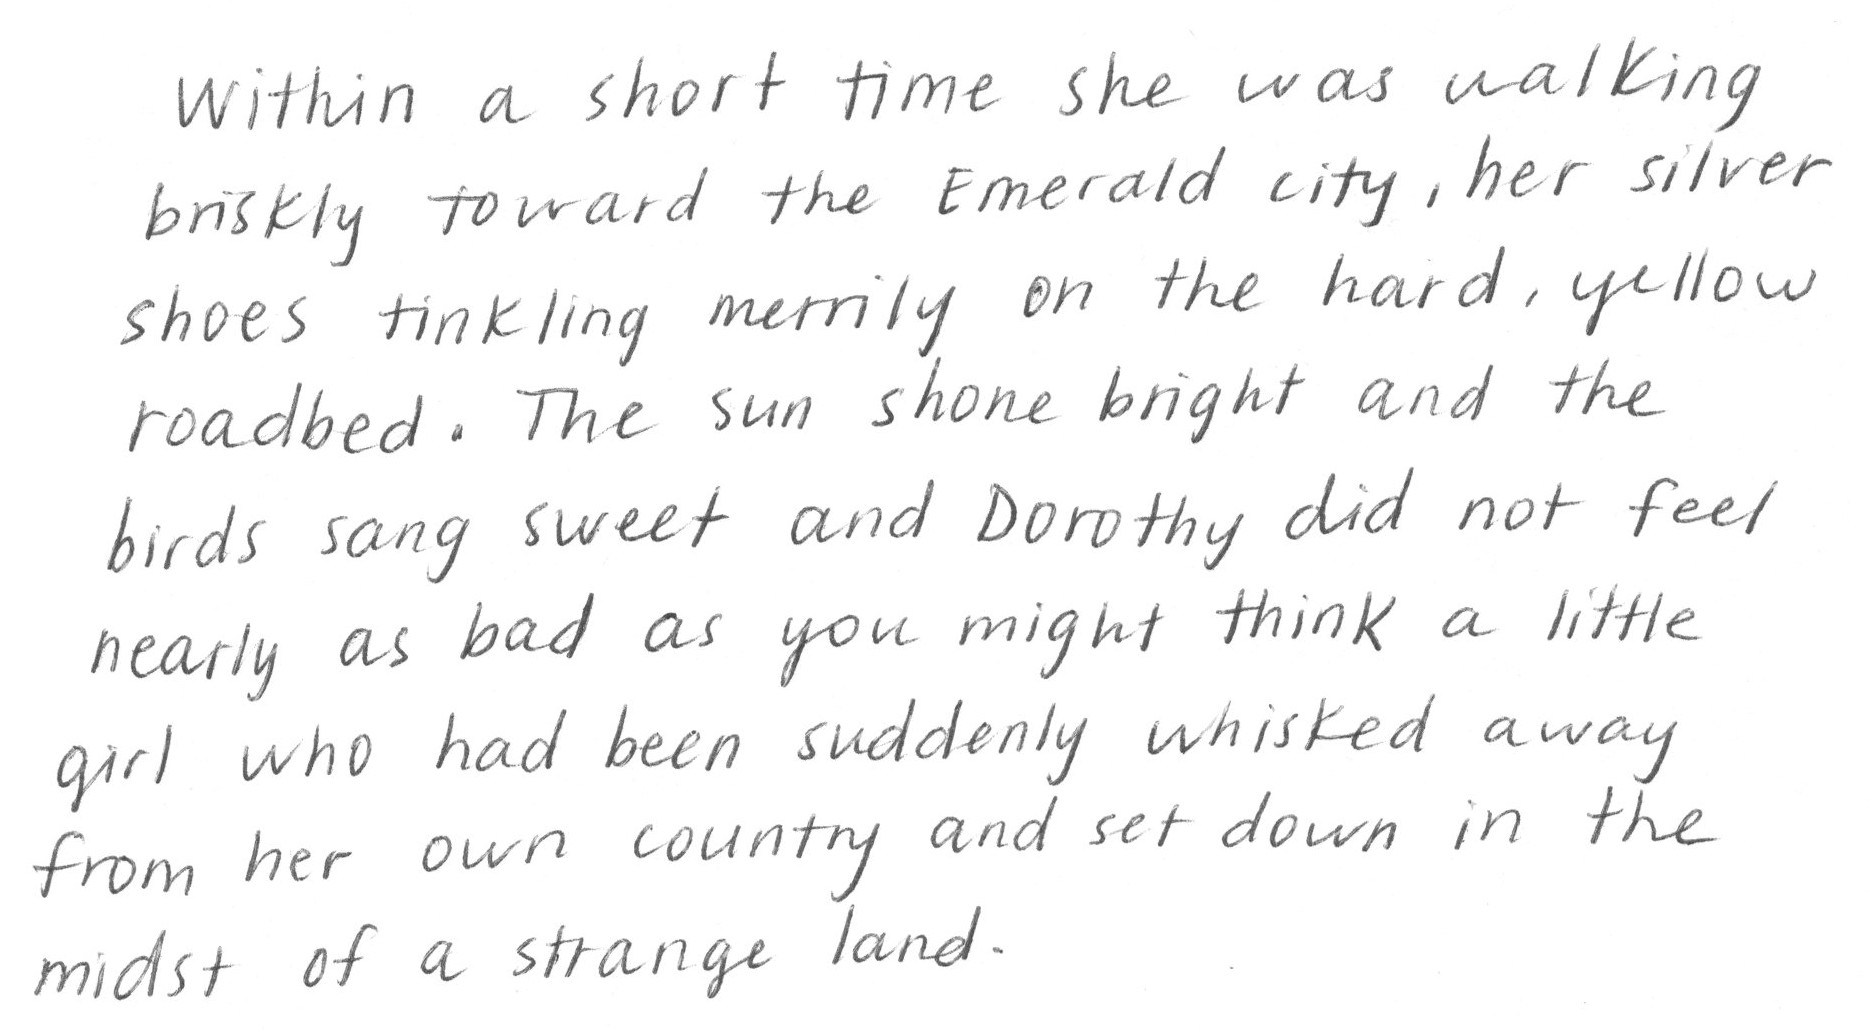 Within a short time she was walking
briskly toward the Emerald city, her silver
shoes tinkling merrily on the hard, yellow
roadbed. The sun shone bright and the
birds sang sweet and Dorothy did not feel
nearly as bad as you might think a little
girl who had been suddenly whisked away
from her own country and set down in the
midst of a strange land.